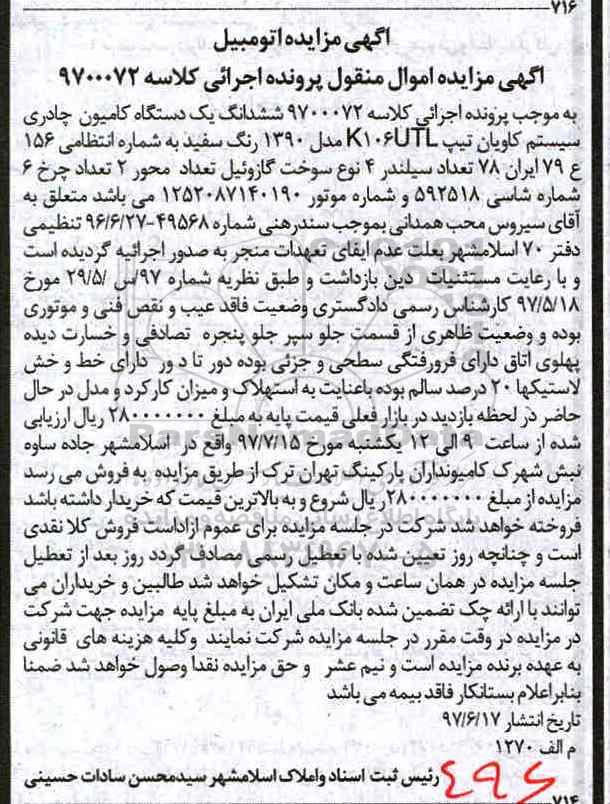 ۷۱۶
آگهی مزایده اتومبیل
آگهی مزایده اموال منقول پرونده اجرائی کلاسه ۹۷۰۰۰۷۲
به موجب پرونده اجرائی کلاسه ۹۷۰۰۰۷۲ ششدانگ یک دستگاه کامیون چادری
سیستم کاویان تیپ K۱۰۶UTL مدل ۱۳۹۰ رنگ سفید به شماره انتظامی ۱۵۶
ع ۷۹ ایران ۷۸ تعداد سیلندر ۴ نوع سوخت گازوئیل تعداد محور ۲ تعداد چرخ ۶
شماره شاسی ۵۹۲۵۱۸ و شماره موتور ۱۲۵۲۰۸۷۱۴۰۱۹۰ می باشد متعلق به
آقای سیروس محب همدانی بموجب سند رهنی شماره ۴۹۵۶۸-۹۶/۶/۲۷ تنظیمی
دفتر ۷۰ اسلامشهر بعلت عدم ایفای تعهدات منجر به صدور اجرائیه گردیده است
و با رعایت مستثنیات دین بازداشت و طبق نظریه شماره ۹۷/س /۲۹/۵ مورخ
۹۷/۵/۱۸ کارشناس رسمی دادگستری وضعیت فاقد عیب و نقص فنی و موتوری
بوده و وضعیت ظاهری از قسمت جلو سپر جلو پنجره تصادفی و خسارت دیده
پهلوی اتاق دارای فرورفتگی سطحی و جزئی بوده دور تا دور دارای خط و خش
لاستیکها ۲۰ درصد سالم بوده باعنایت به استهلاک و میزان کارکرد و مدل در حال
حاضر در لحظه بازدید در بازار فعلی قیمت پایه به مبلغ ۲۸۰۰۰۰۰۰۰ ریال ارزیابی
شده از ساعت ۹ الی ۱۲ یکشنبه مورخ ۹۷/۷/۱۵ واقع در اسلامشهر جاده ساوه
نبش شهرک کامیونداران پارکینگ تهران ترک از طریق مزایده به فروش می رسد
مزایده از مبلغ ۲۸۰۰۰۰۰۰۰ ریال شروع و به بالاترین قیمت که خریدار داشته باشد
فروخته خواهد شد شرکت در جلسه مزایده برای عموم آزاداست فروش کلا نقدی
است و چنانچه روز تعیین شده با تعطیل رسمی مصادف گردد روز بعد از تعطیل
جلسه مزایده در همان ساعت و مکان تشکیل خواهد شد طالبین و خریداران می
توانند با ارائه چک تضمین شده بانک ملی ایران به مبلغ پایه مزایده جهت شرکت
در مزایده در وقت مقرر در جلسه مزایده شرکت نمایند وکلیه هزینه های قانونی
به عهده برنده مزایده است و نیم عشر و حق مزایده نقدا وصول خواهد شد ضمنا
بنابراعلام بستانکار فاقد بیمه می باشد
تاریخ انتشار ۹۷/۶/۱۷
م الف ۱۲۷۰
رئیس ثبت اسناد واملاک اسلامشهر سیدمحسن سادات حسینی
۴۹۶
۷۱۴